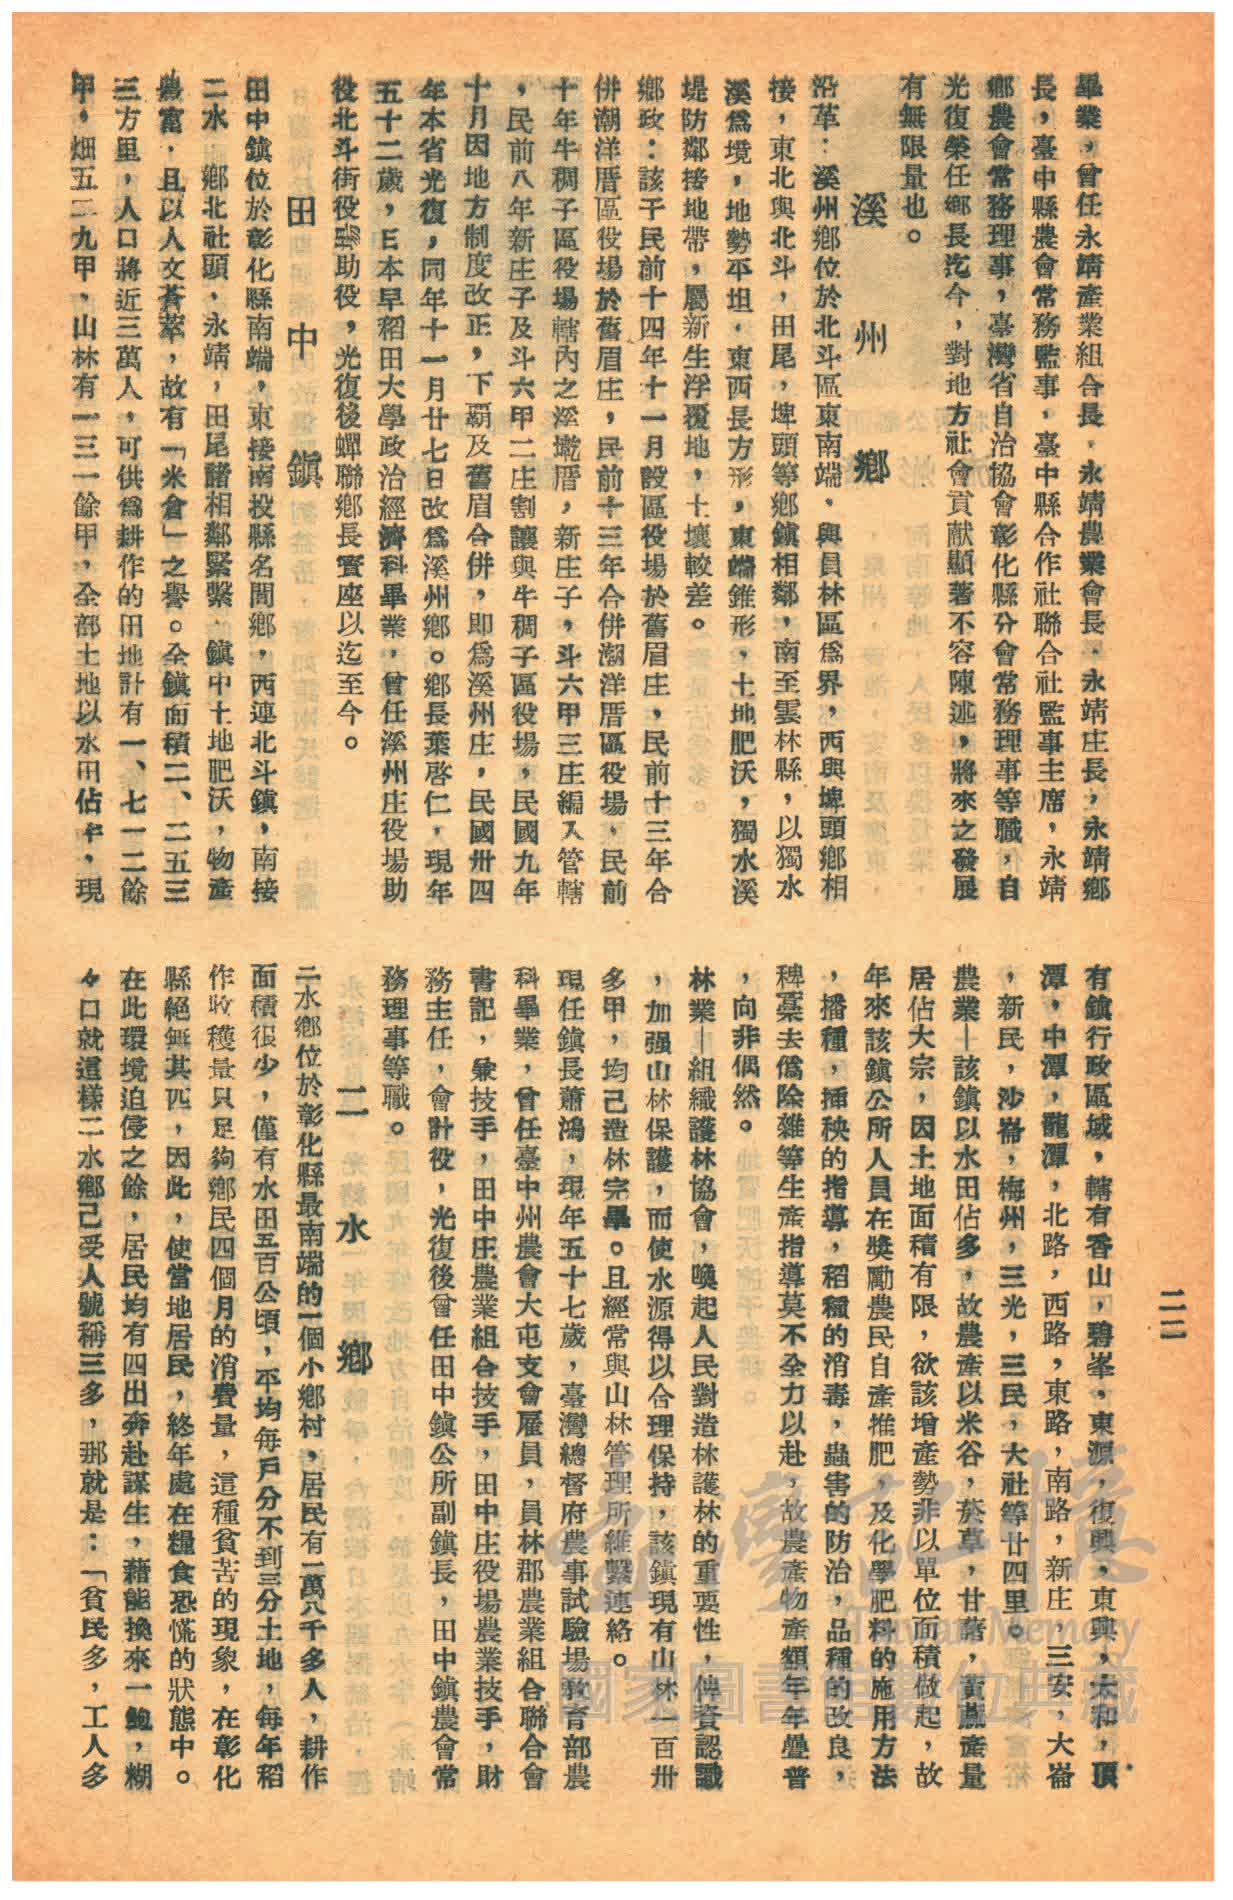 畢業，曾任永靖產業組合長，永靖農業會長，永靖庄長，永靖鄉
長，臺中縣農會常務監事，臺中縣合作社聯合社監事主席，永靖
鄉農會常務理事，臺灣省自治協會彰化縣分會常務理事等職，自
光復榮任鄉長迄今，對地方社會貢献顯著不容陳述，將來之發展
有無限量也。
溪州鄉
沿革：溪州鄉位於北斗區東南端，與員林區爲界，西與埤頭鄉相
接，東北與北斗，田尾，埤頭等鄉鎮相鄰，南至雲林縣，以獨水
溪爲境，地勢平坦，東西長方形，東端錐形，土地肥沃，獨水溪
堤防鄰接地帶，屬新生浮覆地，土壤較差。
鄉政：該于民前十四年十一月設區役場於舊眉庄，民前十三年合
併潮洋厝區役場於舊眉庄，民前十三年合併潮洋厝區役場，民前
十年牛稠子區役場轄內之溼墘厝，新庄子，斗六甲三庄編入管轄
，民前八年新庄子及斗六甲二庄割讓與牛稠子區役場，民國九年
十月因地方制度改正，下覇及舊眉合併，即爲溪州庄，民國卅四
年本省光復，同年十一月廿七日改爲溪州鄉。鄉長葉啓仁，現年
五十二歲，日本早稻田大學政治經濟科畢業，曾任溪州庄役場助
役北斗街役場助役，光復後蟬聯鄉長寶座以迄至今。
田中鎮
田中鎮位於彰化縣南端，東接南投縣名間鄉，西連北斗鎮，南接
二水　鄉北社頭，永靖，田尾諸相鄰緊繫，鎮中土地肥沃，物產
農富，且以人文蒼萃，故有「米倉」之譽。全鎮面積二、二五三
三方里，人口將近三萬人，可供爲耕作的田地計有一、七一二餘
甲，畑五二九甲，山林有一三一餘甲，全部土地以水田佔半，現
有鎮行政區域，轄有香山，碧峯，東源，復興，東興，太和，頂
潭，中潭，龍潭，北路，西路，東路，南路，新庄，三安，大崙
，新民，沙崙，梅州，三光，三民，大社等廿四里。
農業—該鎮以水田佔多，故農產以米谷，菸草，甘藷，黃蔴產量
居佔大宗，因土地面積有限，欲該增產勢非以單位面積做起，故
年來該鎮公所人員在獎勵農民自產推肥，及化學肥料的施用方法
，播種，插秧的指導，稻種的消毒，蟲害的防治，品種的改良，
稗藁去僞除雜等生產指導莫不全力以赴，故農產物產額年年疊普
，向非偶然。
林業—組織護林協會，喚起人民對造林護林的重要性，俾資認識
，加强山林保護，而使水源得以合理保持，該鎮現有山林一百卅
多甲，均己造林完畢。且經常與山林管理所維繫連絡。
現任鎮長蕭鴻，現年五十七歲，臺灣總督府農事試驗場教育部農
科畢業，曾任臺中州農會大屯支會雇員，員林郡農業組合聯合會
書記，兼技手，田中庄農業組合技手，田中庄役場農業技手，財
務主任，會計役，光復後曾任田中鎮公所副鎮長，田中鎮農會常
務理事等職。
二水鄉
二水鄉位於彰化縣最南端的一個小鄉村，居民有一萬八千多人，耕作
面積很少，僅有水田五百公頃，平均每戶分不到三分土地，每年稻
作收穫量只足夠鄉民四個月的消費量，這種貧苦的現象，在彰化
縣絕無其匹，因此，使當地居民，終年處在糧食恐慌的狀態中。
在此環境迫侵之餘，居民均有四出奔赴謀生，藉能換來一鮑，糊
々口就這樣二水鄉己受人號稱三多，那就是：「貧民多，工人多
二二
臺灣記憶
Taiwan Memory
國家圖書館數位典藏